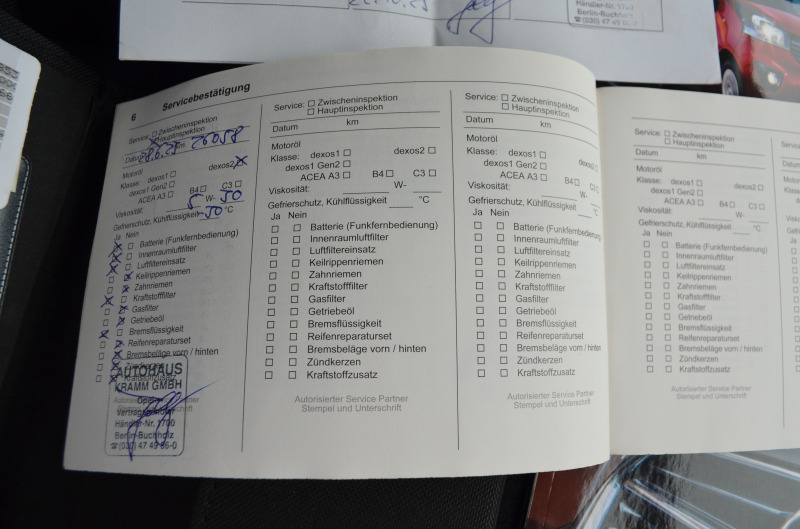 Händler-Nr. 1700
Berlin-Buchholz
6 Servicebestätigung
Service: Zwischeninspektion
Hauptinspektion
Datum 28.6.23 km 26058
Motoröl
Klasse: dexos1 dexos2
dexos1 Gen2
ACEA A3 B4 C3
Viskosität: 5 W- 30
Gefrierschutz, Kühlflüssigkeit -30 °C
Ja Nein
Batterie (Funkfernbedienung)
Innenraumluftfilter
Luftfiltereinsatz
Keilrippenriemen
Zahnriemen
Kraftstofffilter
Gasfilter
Getriebeöl
Bremsflüssigkeit
Reifenreparaturset
Bremsbeläge vorn / hinten
AUTOHAUS
KRAMM GMBH
Händler-Nr. 1700
Berlin-Buchholz
Service: Zwischeninspektion
Hauptinspektion
Datum km
Motoröl
Klasse: dexos1 dexos2
dexos1 Gen2
ACEA A3 B4 C3
Viskosität: W-
Gefrierschutz, Kühlflüssigkeit °C
Ja Nein
Batterie (Funkfernbedienung)
Innenraumluftfilter
Luftfiltereinsatz
Keilrippenriemen
Zahnriemen
Kraftstofffilter
Gasfilter
Getriebeöl
Bremsflüssigkeit
Reifenreparaturset
Bremsbeläge vorn / hinten
Zündkerzen
Kraftstoffzusatz
Autorisierter Service Partner
Stempel und Unterschrift
Service: Zwischeninspektion
Hauptinspektion
Datum km
Motoröl
Klasse: dexos1 dexos2
dexos1 Gen2
ACEA A3 B4 C3
Viskosität: W-
Gefrierschutz, Kühlflüssigkeit °C
Ja Nein
Batterie (Funkfernbedienung)
Innenraumluftfilter
Luftfiltereinsatz
Keilrippenriemen
Zahnriemen
Kraftstofffilter
Gasfilter
Getriebeöl
Bremsflüssigkeit
Reifenreparaturset
Bremsbeläge vorn / hinten
Zündkerzen
Kraftstoffzusatz
Autorisierter Service Partner
Stempel und Unterschrift
Service: Zwischeninspektion
Hauptinspektion
Datum km
Motoröl
Klasse: dexos1 dexos2
dexos1 Gen2
ACEA A3 B4 C3
Viskosität: W-
Gefrierschutz, Kühlflüssigkeit °C
Ja Nein
Batterie (Funkfernbedienung)
Innenraumluftfilter
Luftfiltereinsatz
Keilrippenriemen
Zahnriemen
Kraftstofffilter
Gasfilter
Getriebeöl
Bremsflüssigkeit
Reifenreparaturset
Bremsbeläge vorn / hinten
Zündkerzen
Kraftstoffzusatz
Autorisierter Service Partner
Stempel und Unterschrift